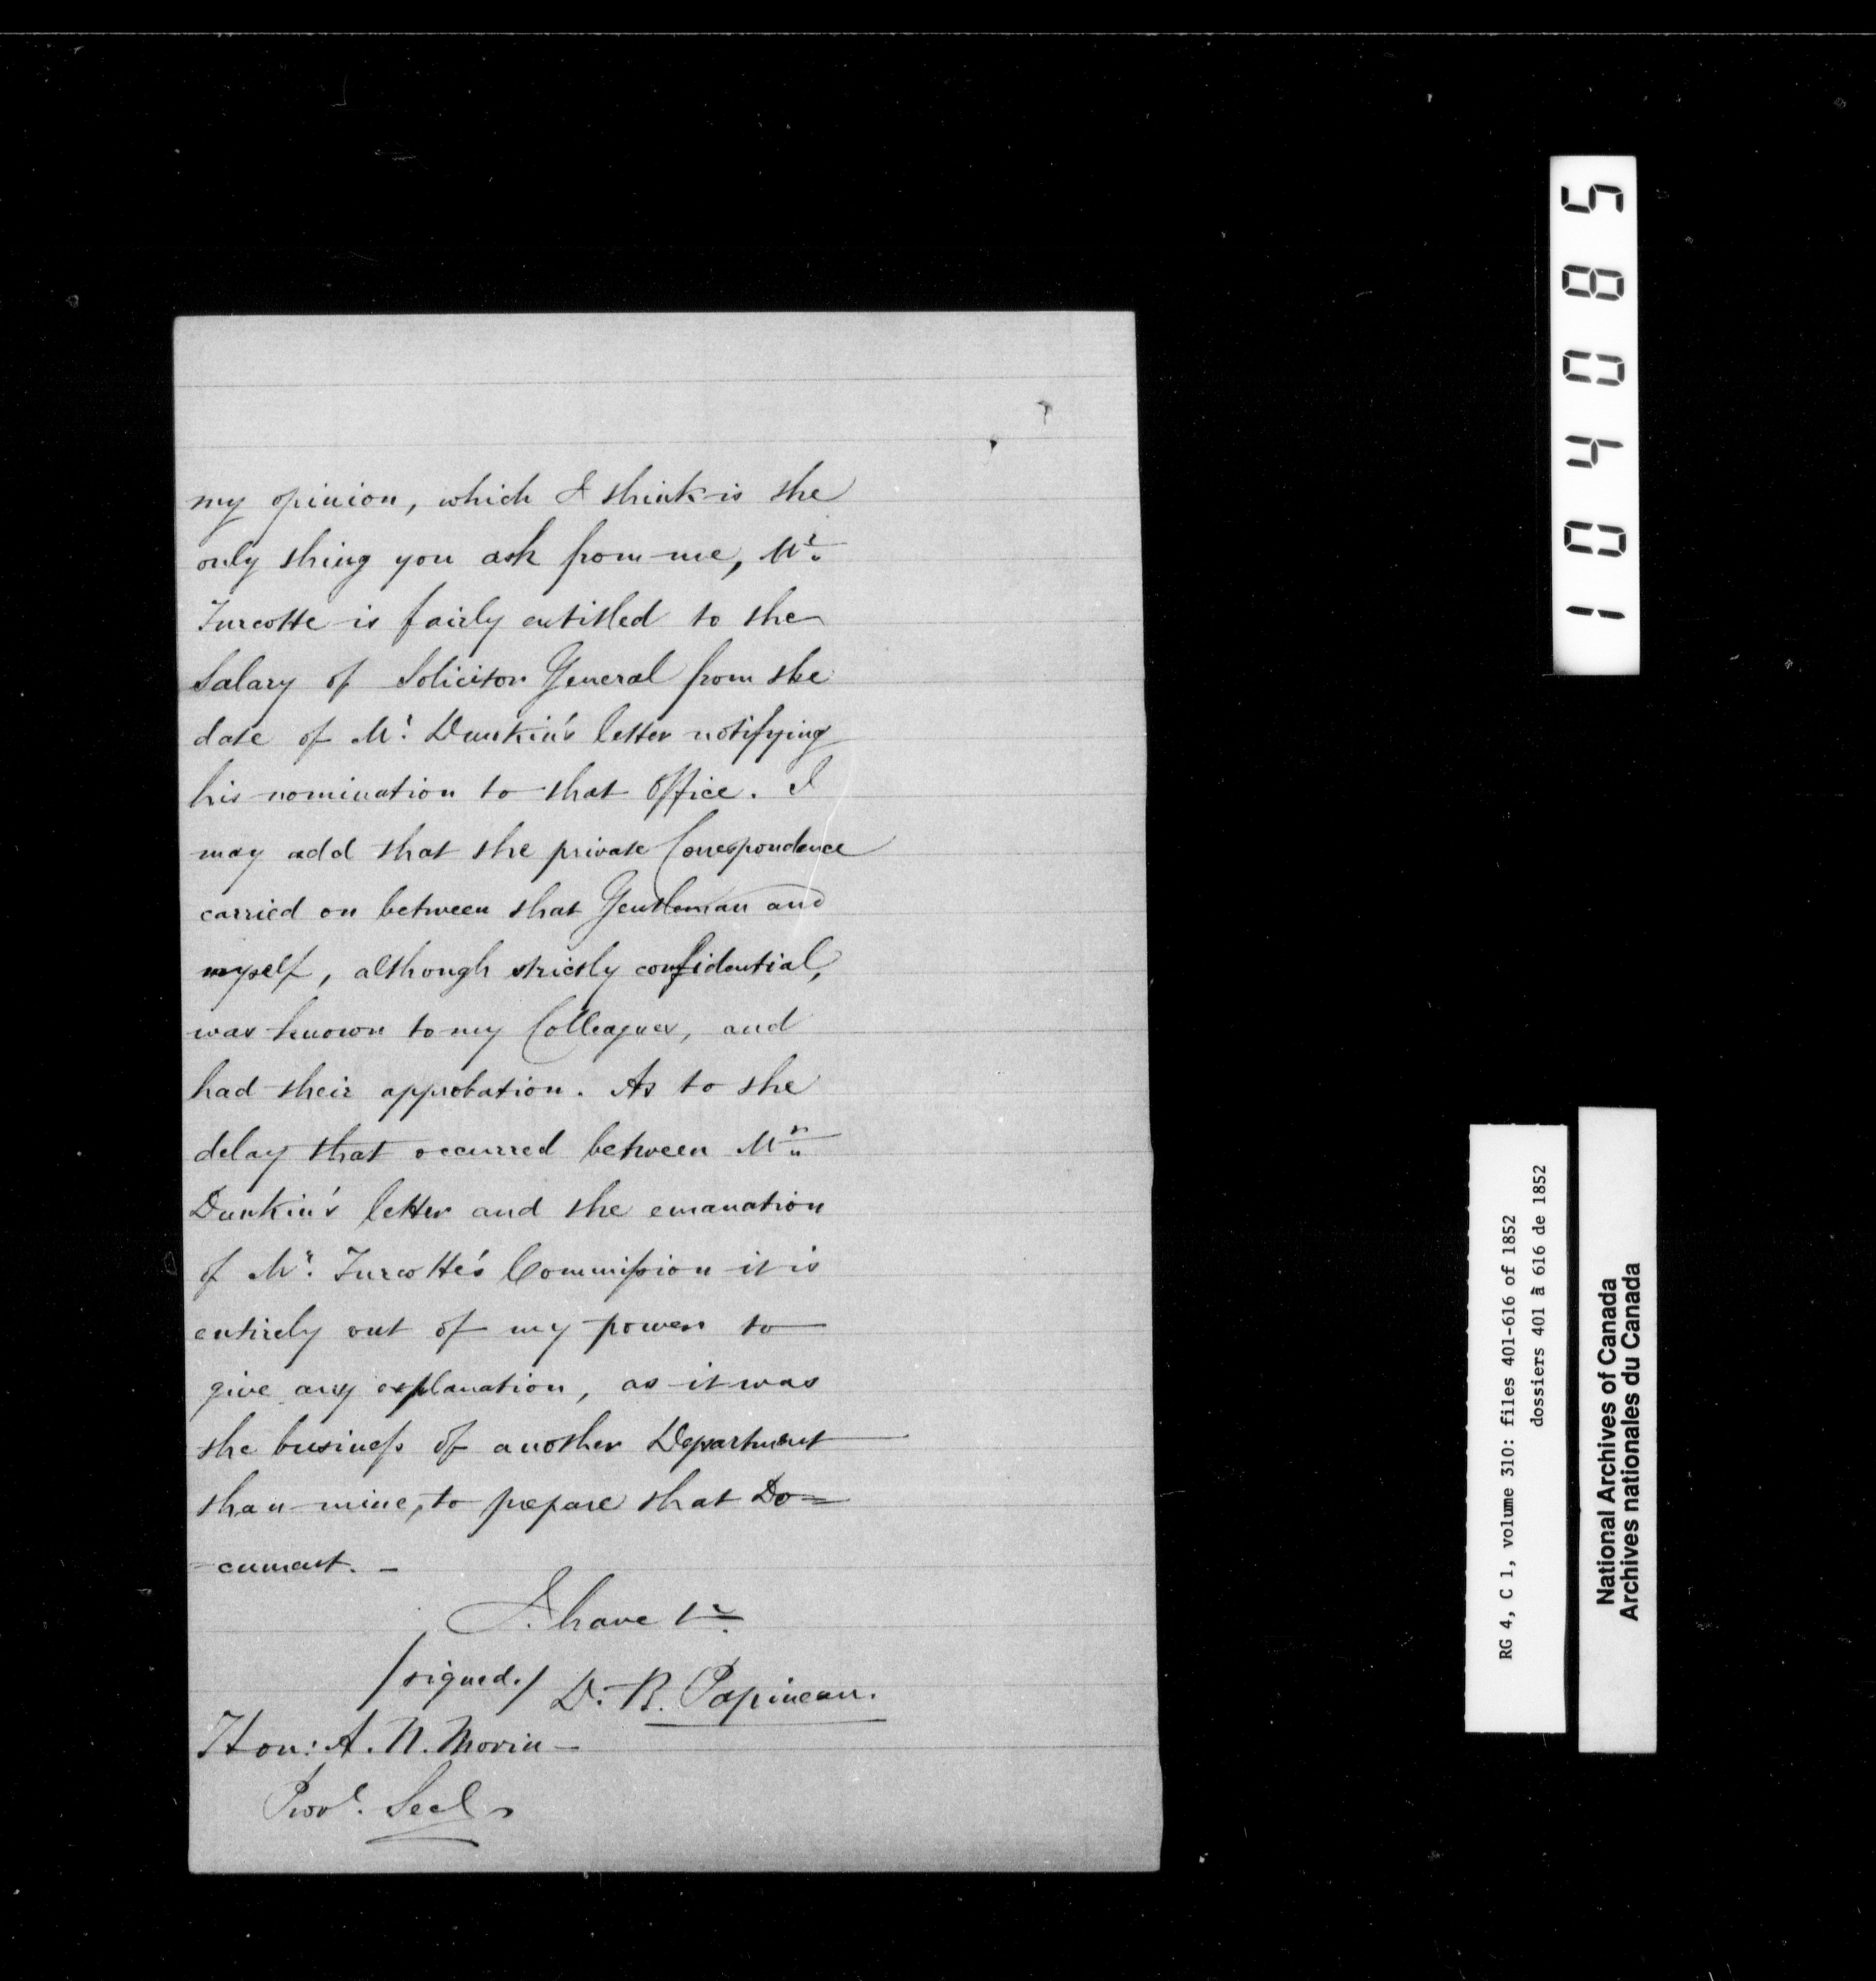 my opinion, which I think is the
only thing you ask from me, Mr.
Turcotte is fairly entitled to the
Salary of Solicitor General from the
date of Mr. Dunkin's letter notifying
his nomination to that office. I
may add that the private Correspondence
carried on between that Gentleman and
myself, although strictly confidential,
was known to my Colleagues, and
had their approbation. As to the
delay that occurred between Mr.
Dunkin's letter and the emanation
of Mr. Turcotte's Commission it is
entirely out of my power to
give any explanation, as it was
the business of another Department
than mine, to prepare that Do=
cument. -
I have
/signed./ D. B. Papineau.
Hon: A. N. Morin -
Provl. Secy
104085
RG 4, C 1, volume 310: files 401-616 of 1852
dossiers 401 à 616 de 1852
National Archives of Canada
Archives nationales du Canada